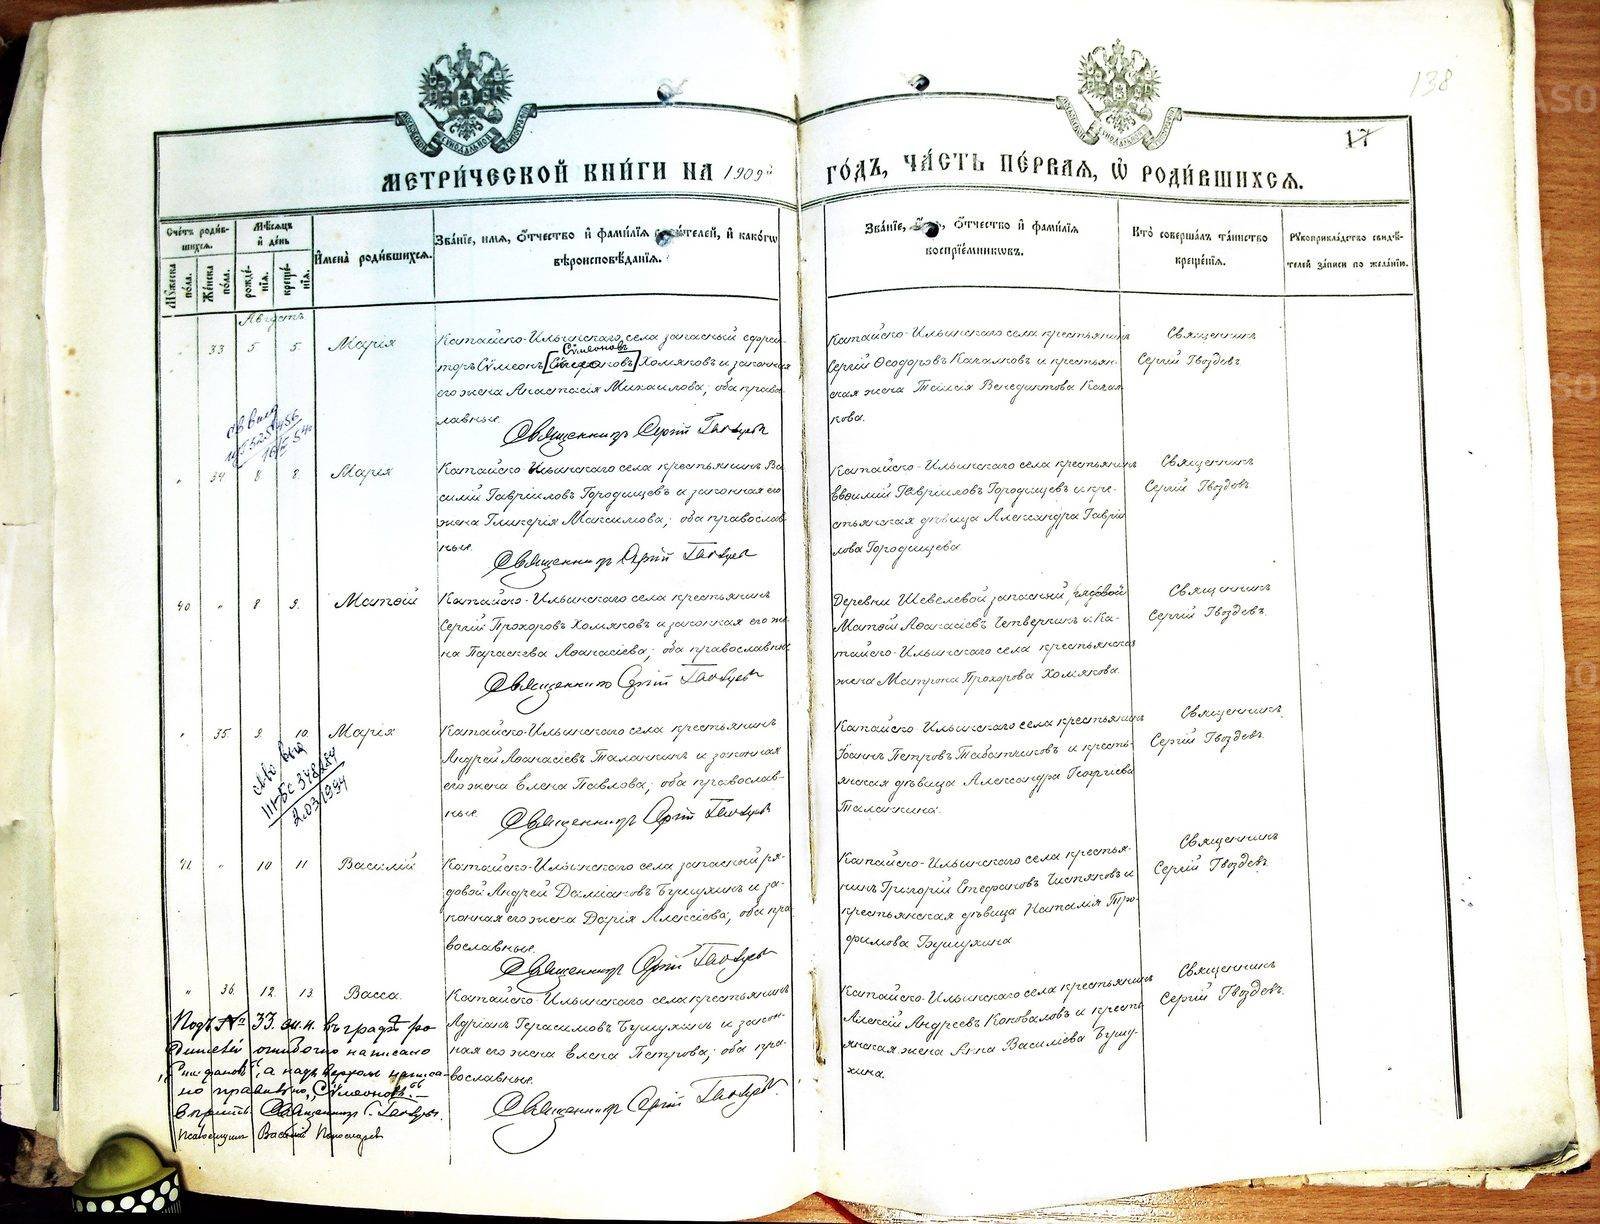 138
17
МЕТРИ́ЧЕСКОЙ КНИ́ГИ НА 1909й ГО́ДЪ, ЧА́СТЬ ПЕ́РВАЯ, Ѡ РОДИ́ВШИХСЯ.
Сче́тъ роди́вшихся.
Мѣ́сяцъ и де́нь
Мꙋ́жеска по́ла.
Же́нска по́ла.
рожде́нїя.
креще́нїя.
Имена̀ роди́вшихся.
Зва́нїе, имя, ѻ҆́тчество и҆ фами́лїѧ роди́телей, и҆ како́гѡ
вѣроисповѣ́данїѧ.
Зва́нїе, ѻ҆́тчество и҆ фами́лїѧ
воспрїе́мникѡвъ.
Кто̀ соверша́лъ та́инство
креще́нїѧ.
Рꙋкоприкла́дство свидѣ́-
телей за́писи по жела́нїю.
Августъ
" 33 5 5. Марія
Катайско-Ильинскаго села запасный ефрей-
Сѵмеоновъ
торъ Сѵмеонъ [Стефановъ] Хомяковъ и законная
его жена Анастасія Михаилова; оба право-
лавные.
Священникъ Сергій Гвоздевъ
Катайско-Ильинскаго села крестьянинъ
Сергій Ѳеодоровъ Качалковъ и крестьян-
ская жена Таисія Венедиктова Качал-
кова.
Священникъ
Сергій Гвоздевъ
" 34 8 8. Марія
Катайско-Ильинскаго села крестьянинъ Ва-
силій Гавріиловъ Городищевъ и законная его
жена Гликерія Максимова; оба православ-
ные.
Священникъ Сергій Гвоздевъ
Катайско-Ильинскаго села крестьянинъ
Евѳимій Гавріиловъ Городищевъ и кре-
стьянская дѣвица Александра Гаврі-
лова Городищева
Священникъ
Сергій Гвоздевъ.
40. " 8 9. Матѳій
Катайско-Ильинскаго села крестьянинъ
Сергій Прохоровъ Хомяковъ и законная его же-
на Параскева Аѳанасіева; оба православные
Священникъ Сергій Гвоздевъ
Деревни Шевелевой запасный рядовой
Матѳій Аѳанасіевъ Четверкинъ и Ка-
тайско-Ильинскаго села крестьянская
жена Матрона Прохорова Хомякова.
Священникъ
Сергій Гвоздевъ.
" 35 9. 10. Марія
Катайско-Ильинскаго села крестьянинъ
Андрей Аѳанасіевъ Таланкинъ и законная
его жена Елена Павлова; оба православ-
ные.
Священникъ Сергій Гвоздевъ
2.03.1994
Катайско-Ильинскаго села крестьянинъ
Іоаннъ Петровъ Табатчиковъ и кресть-
янская дѣвица Александра Георгіева
Таланкина.
Священникъ
Сергій Гвоздевъ.
41. " 10 11 Василій
Катайско-Ильинскаго села запасной ря-
довой Андрей Даміановъ Бушухинъ и за-
конная его жена Дарія Алексіева; оба пра-
вославные.
Священникъ Сергій Гвоздевъ
Катайско-Ильинскаго села крестья-
нинъ Григорій Стефановъ Чистяковъ и
крестьянская дѣвица Наталія Тро-
фимова Бушухина
Священникъ
Сергій Гвоздевъ.
" 36. 12. 13. Васса.
Катайско-Ильинскаго села крестьянинъ
Адріанъ Герасимовъ Бушухинъ и закон-
ная его жена Елена Петрова; оба пра-
вославные.
Священникъ Сергій Гвоздевъ.
Катайско-Ильинскаго села крестьянинъ
Алексій Андреевъ Коновалов и кресть-
янская жена Анна Василіева Бушу-
хина.
Священникъ
Сергій Гвоздевъ.
Подъ № 33 въ графѣ ро-
дителей ошибочно написано
"Стефановъ", а надъ написа-
но правильно "Сѵмеоновъ".—
Священникъ С. Гвоздевъ.
Псаломщикъ Василій Пономаревъ